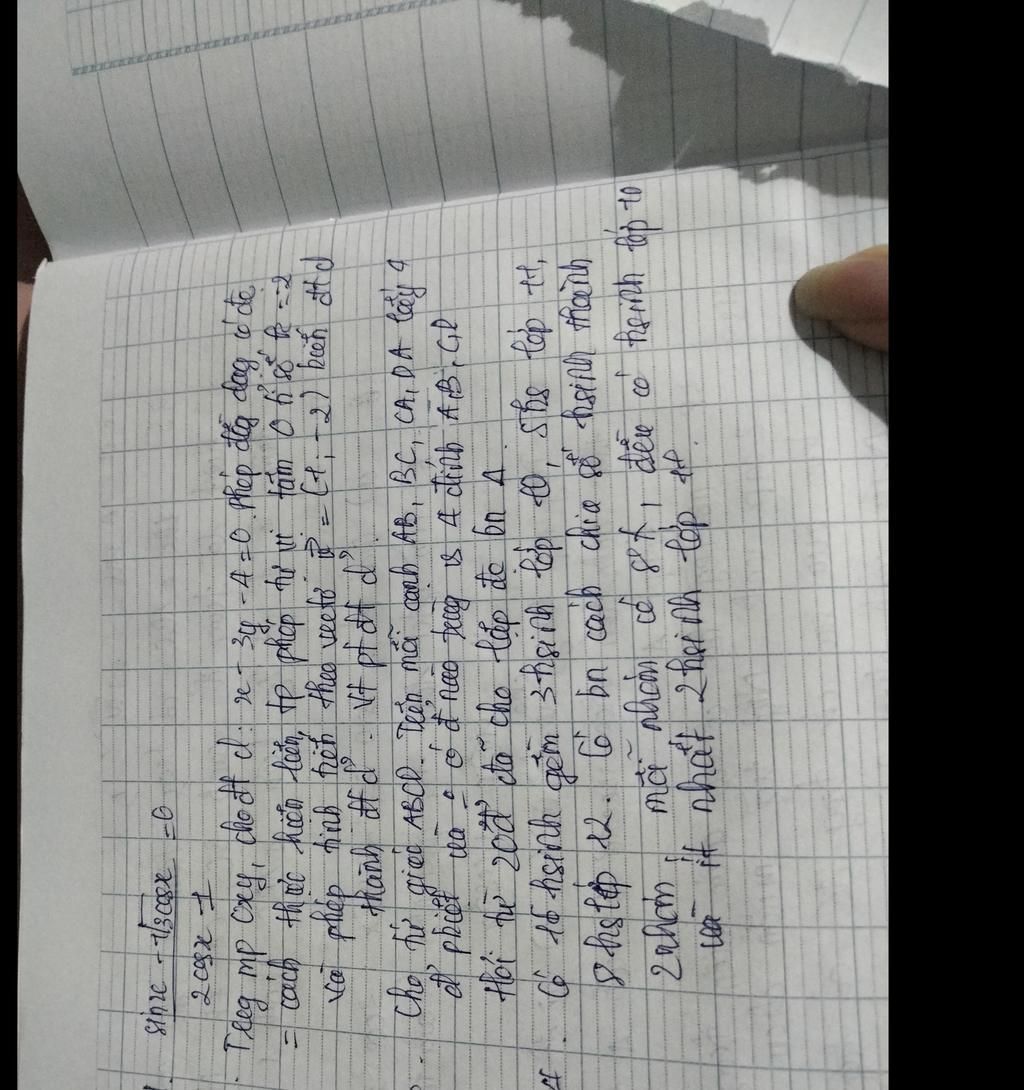 sinx - √3cosx = 0
2cosx - 1
Trog mp Oxy, cho đt d: x - 3y - 4 = 0. Phép đồg dạg có đc
= cách thực hiện liên tp phép vị tự tâm O tỉ số k = -2
và phép tịnh tiến theo vectơ = (1; -2) biến đt d
thành đt d'. Vt pt đt d'
Cho tứ giác ABCD. Trên mỗi cạnh AB, BC, CA, DA lấy 4
đ' phiệt và 0 có đ' nào trùg vs 4 đỉnh A, B, C, D
Hỏi từ 20đ' đã cho lập đc bn Δ
Có 16 hsinh gồm 3 hsinh lớp 10, 5hs lớp 11,
8 hs lớp 12. Có bn cách chia số hsinh thành
2 nhóm, mỗi nhóm có 8, đều có hsinh lớp 10
và ít nhất 2 hsinh lớp 11.